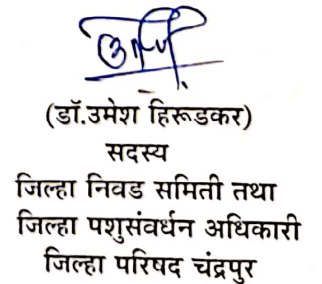 (डॉ.उमेश हिरूडकर)
सदस्य
जिल्हा निवड समिती तथा
जिल्हा पशुसंवर्धन अधिकारी
जिल्हा परिषद चंद्रपुर